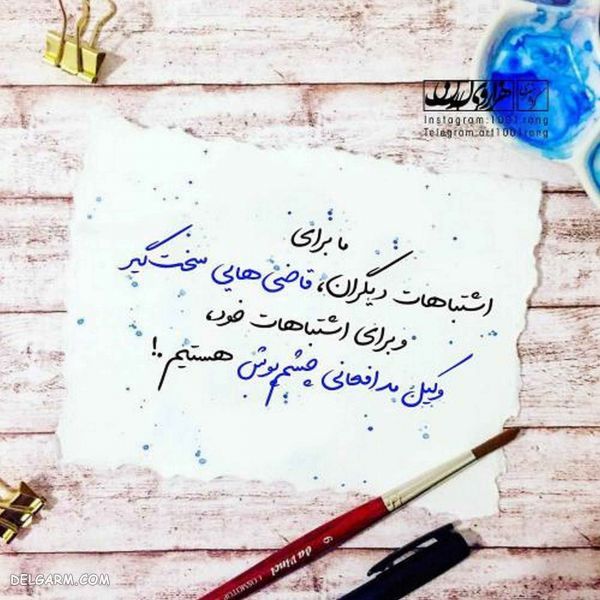 Instagram:1001rang
Telegram:art1001rang
ما برای
اشتباهات دیگران، قاضی‌هایی سخت‌گیر
و برای اشتباهات خود،
وکیل مدافعانی چشم‌پوش هستیم.!
6 da Vinci
DELGARM.COM